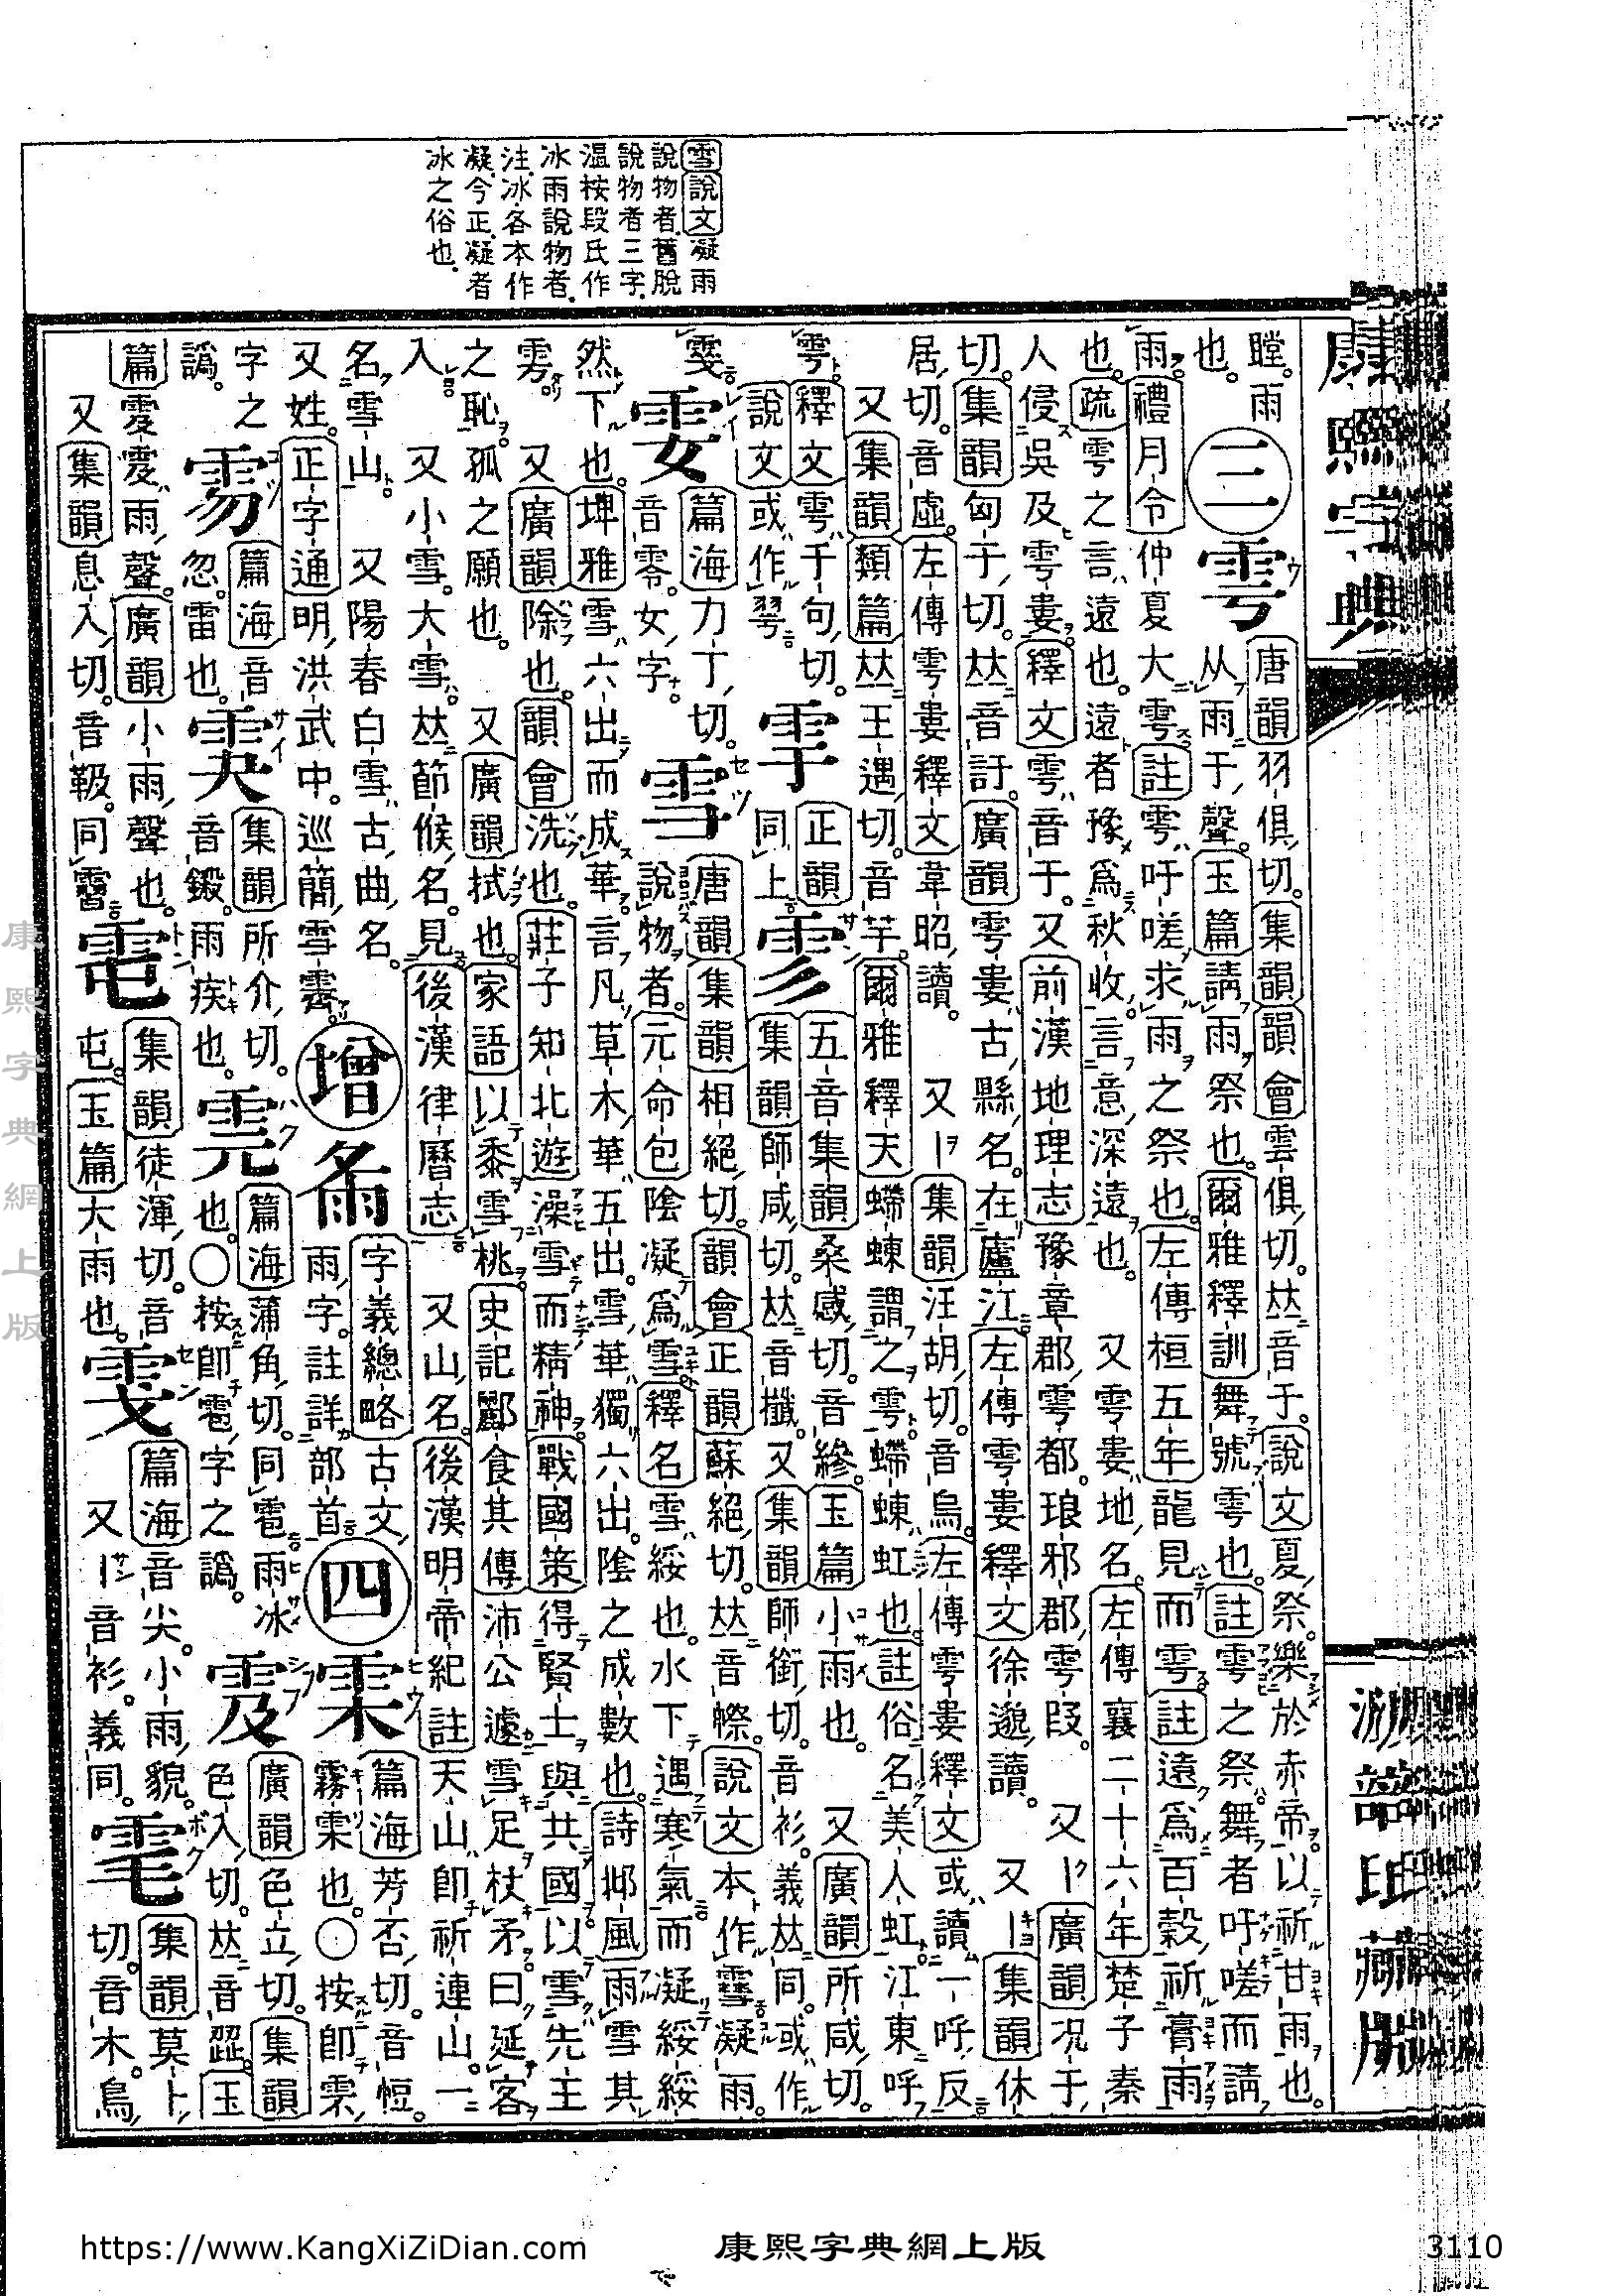 雪說文凝雨
說物者。舊脫
說物者三字。
溫按段氏作
冰雨說物者。
注冰各本作
凝今正。凝者
冰之俗也。
康熙字典
瞠。雨 三 雩 唐韻羽俱切。集韻韻會雲俱切。𠀤音于。說文夏祭樂於赤帝。以祈甘雨也。
也。 从雨于聲。玉篇請雨祭也。爾雅釋訓舞號雩也。註雩之祭。舞者吁嗟而請
雨。禮月令仲夏大雩註雩吁嗟求雨之祭也。左傳桓五年龍見而雩註遠爲百穀祈膏雨
也。疏雩之言遠也。遠者豫爲秋收。言意深遠也。 又雩婁地名。左傳襄二十六年楚子秦
人侵吳及雩婁。釋文雩音于。又前漢地理志豫章郡雩都。琅邪郡雩叚。 又丨廣韻況于
切。集韻匈于切。𠀤音訏。廣韻雩婁古縣名。在廬江。左傳雩婁釋文徐邈讀。 又丨集韻休
居切。音虛。左傳雩婁釋文韋昭讀。 又丨集韻汪胡切。音烏。左傳雩婁釋文或讀一呼反
又集韻類篇𠀤王遇切。音芋。爾雅釋天螮蝀謂之雩螮蝀虹也註俗名美人虹。江東呼
雩。釋文雩千句切。 雽 正韻 五音集韻桑感切。音糝。玉篇小雨也。 又廣韻所咸切。
說文或作 同上 集韻師咸切。𠀤音攕。又集韻師銜切。音衫。義𠀤同。或作
篇海力丁切。 雪 唐韻集韻相絕切。韻會正韻蘇絕切。𠀤音 說文本作䨮凝雨。
音零。女字。 說物者。元命包陰凝爲雪釋名雪綏也。水下遇寒氣而凝綏綏
然下也。埤雅雪六出而成華。言凡草木華五出。雪華獨六出。陰之成數也。詩邶風雨雪其
雱。 又廣韻除也。韻會洗也。莊子知北遊澡雪而精神。戰國策得賢士與共國以雪先王
之恥。孤之願也。 又廣韻拭也家語以黍雪桃。史記酈食其傳沛公遽雪足杖矛曰延客
入。 又小雪。大雪𠀤節候名。見後漢律曆志 又山名。後漢明帝紀註天山卽祈連山。一
名雪山。 又陽春白雪古曲名。 增 字義總略古文 四 篇海芳否切。音
又姓。正字通明洪武中。巡簡雪霽。 雨字。註詳部首 霧 也。〇按卽
字之 篇海音 集韻所介切。 篇海蒲角切。同雹雨冰 廣韻色立切。集韻
譌。 忽。雷也。 音鎩。雨疾也。 也。〇按卽雹字之譌。 色入切。𠀤音澀。玉
篇 雨聲。廣韻小雨聲也。 集韻徒渾切。音 篇海音尖。小雨貌。 集韻莫卜
又集韻息入切。音靸。同霫 屯。玉篇大雨也。 又丨音衫。義同。 切。音木。鳥
康熙字典網上版
https://www.KangXiZiDian.com
康熙字典網上版
3110